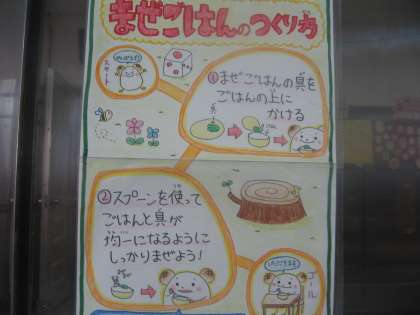 まぜごはんのつくり方
スタート
①まぜごはんの具を
ごはんの上に
かける
具
②スプーンを使って
ごはんと具が
均一になるように
しっかりまぜよう!
ゴール